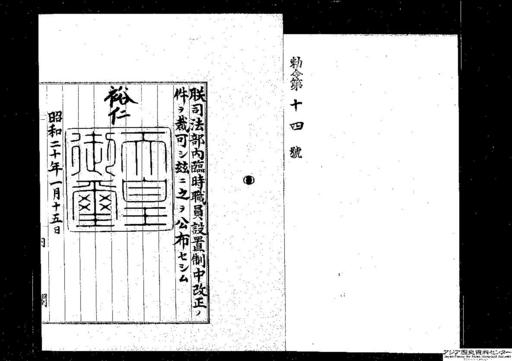 勅令第十四號
朕司法部內臨時職員設置制中改正ノ
件ヲ裁可シ玆ニ之ヲ公布セシム
裕仁
天皇
御璽
昭和二十年一月十五日
アジア歴史資料センター